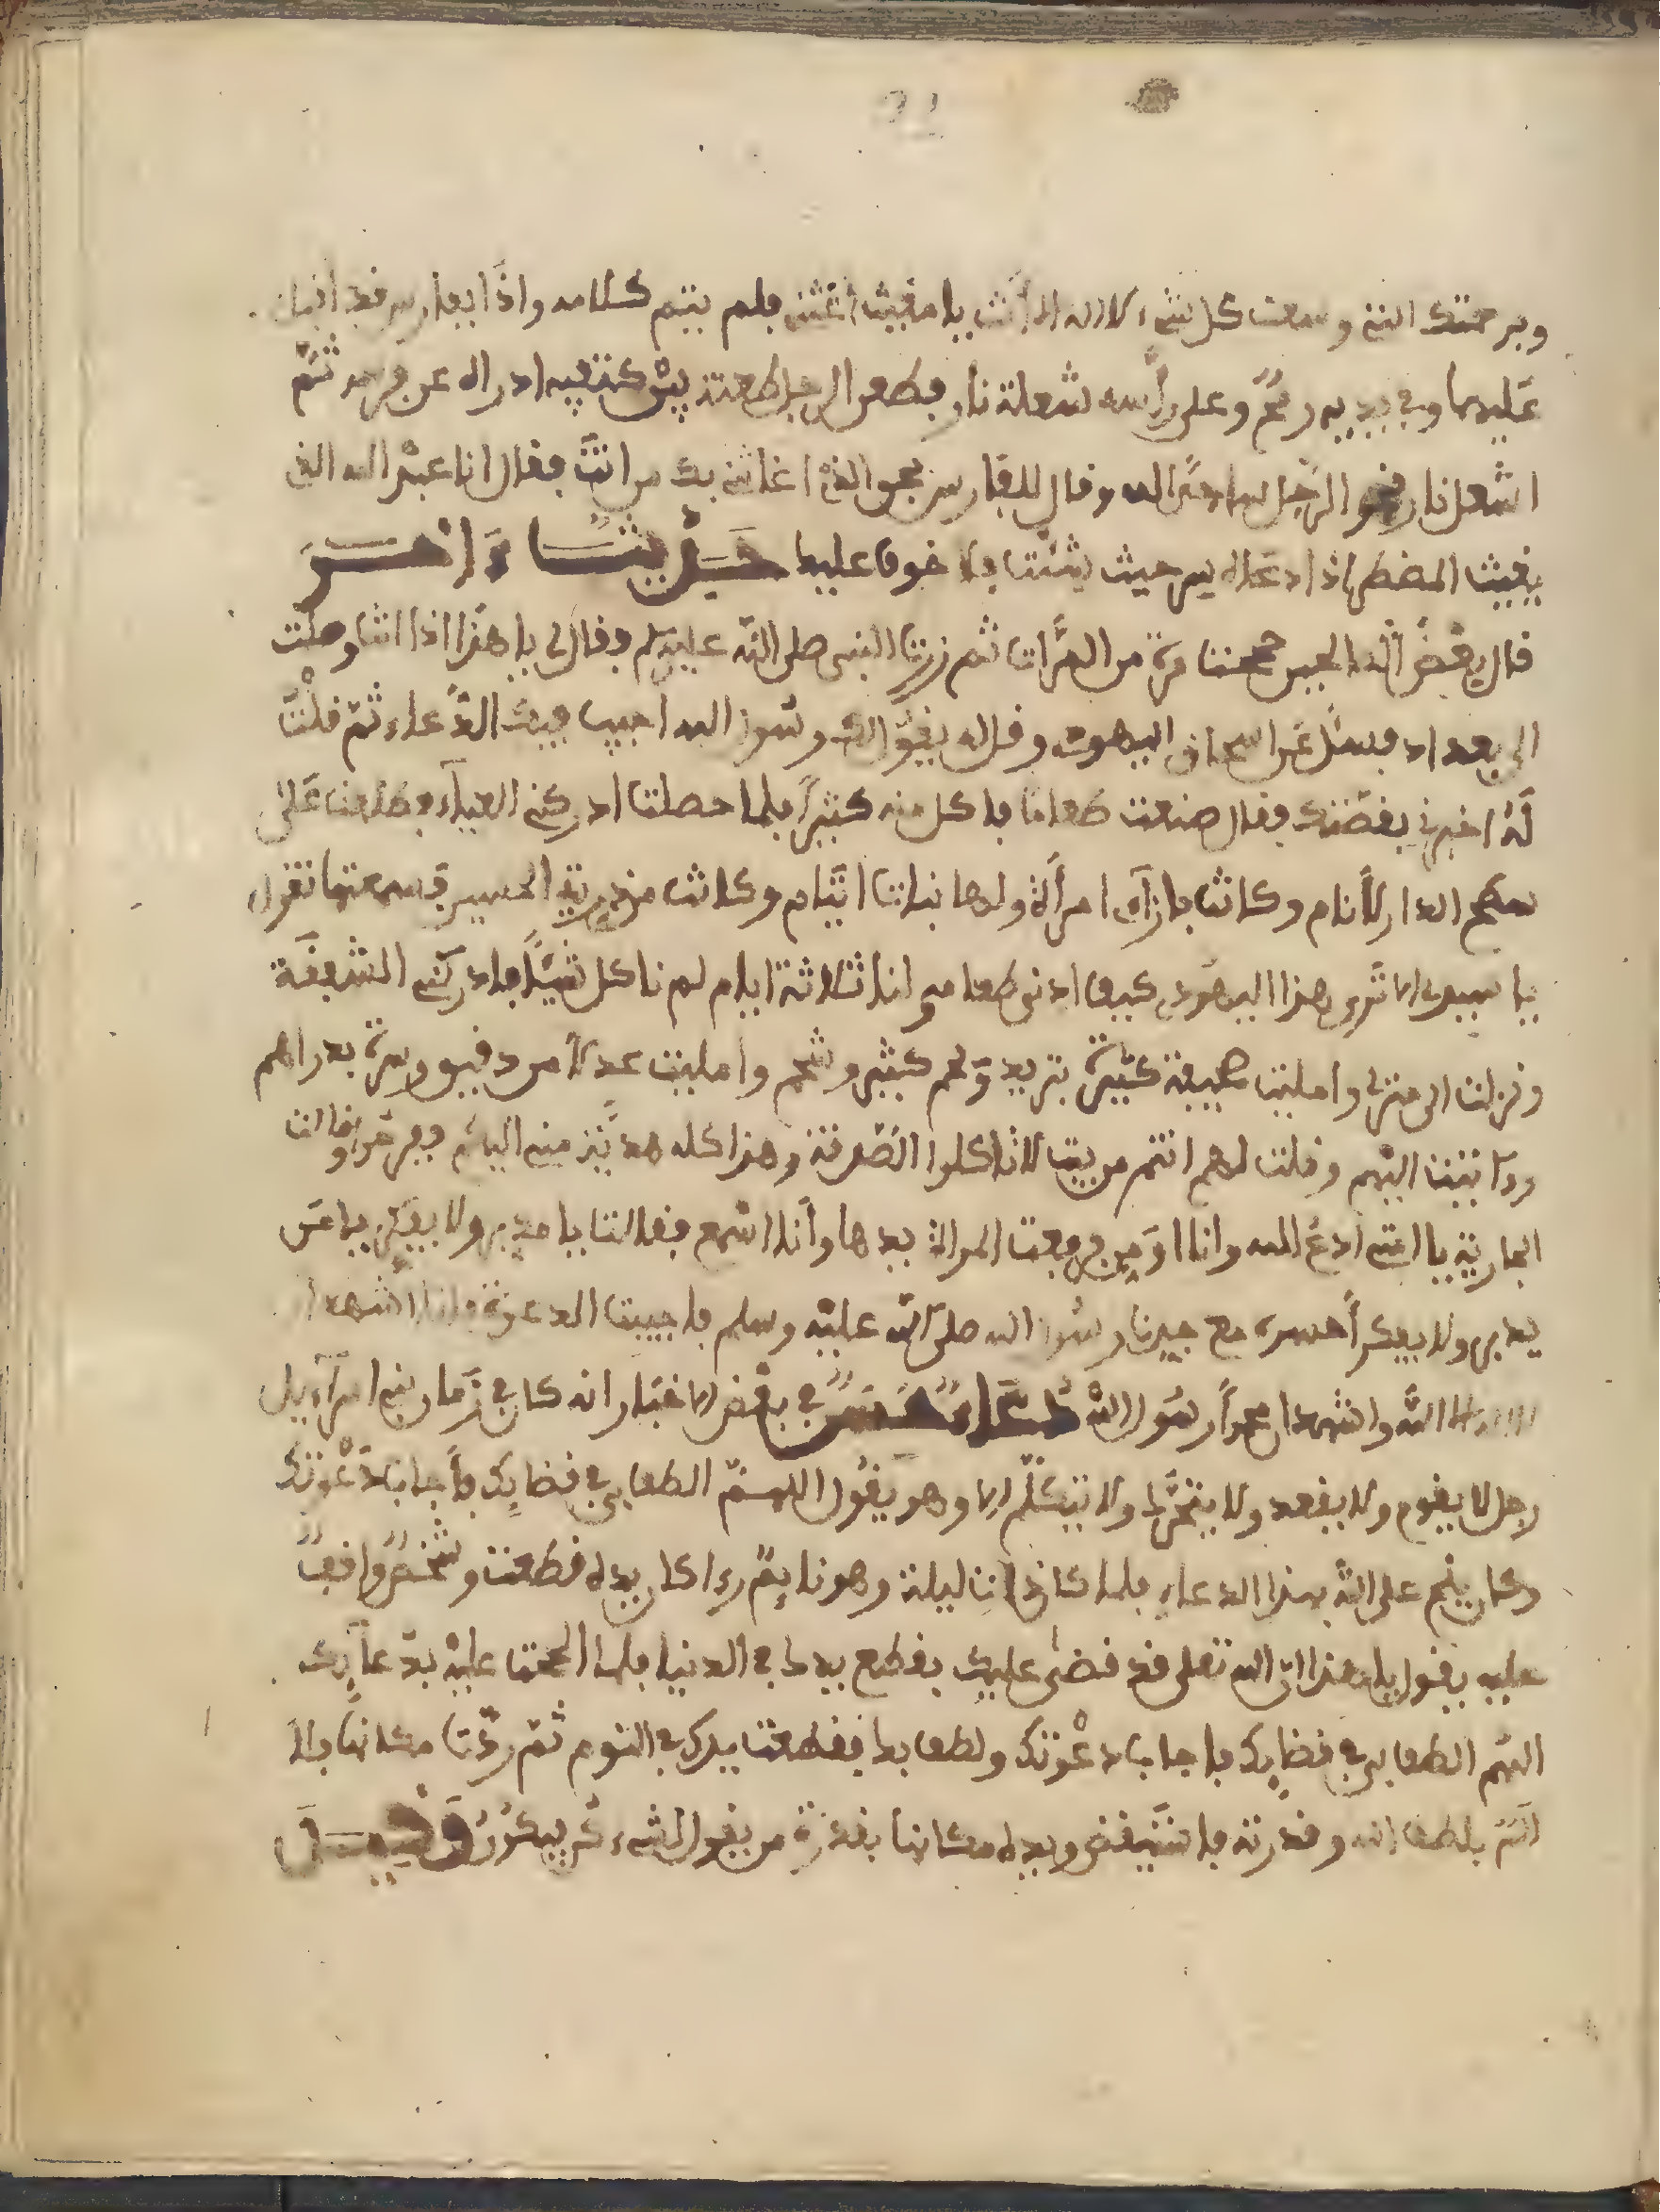 وبرحمتك التي وسعت كل شيء لا اله الا أنت يا مغيث أغثني فلم يتم كلامه واذا بفارس قد اقبل
عليهما وفي يديه رمح وعلى رأسه شعلة نار فطعن الرجل طعنة بين كتفيه ادراه عن فرسه ثم
اشعل نار الرجل الله وقال للفارس بحق الذي اغاثني بك من انت فقال انا عبد الله الذي
يغيث المضطر اذا دعاه سر حيث شئت فلا خوف عليك حديث اخر
قال بعض الصالحين حججنا مرة من المرات ثم زرنا النبي صلى الله عليه وسلم وقال لي يا هذا اذا انت وصلت
الى بغداد فسئل عن اسحاق اليهودي وقل له يقول لك رسول الله اجيب فيك الدعاء ثم قلت
له اخبرني بقصتك فقال صنعت طعاما فاكل منه كثيرا فلما حصلت ادركني العياء فطلعت على
سطح الدار لأنام وكانت بازآى امرأة ولها بنات ايتام وكانت من ذرية الحسين فسمعتها تقول
يا سيدي اما ترى هذا اليهودي كيف اذنى طعامه ولنا ثلاثة ايام لم ناكل شيئا فادركتني الشفقة
ونزلت الى منزلي وامليت صحيفة كبيرة بثريد ولحم كثير وشحم وامليت عدلا من دقيق وصرة بدراهم
واتيت اليهم وقلت لهم انتم من بيت لا تاكلوا الصدقة وهذا كله هدية مني اليكم ففرحوا وقالت
الجارية يا امتي ادع الله وانا اؤمن فرفعت المراة يدها وأنا اسمع فقالت يا مدبر ولا يفكر يا من
يدبر ولا يفكر أحسره مع جدنا رسول الله صلى الله عليه وسلم فاجيبت الدعوة وانا اشهد ان
لا اله الا الله واشهد ان محمدا رسول الله دعاء حسن في بعض الاخبار انه كان في زمان بني اسرآءيل
رجل لا يقوم ولا يقعد ولا يتحرك ولا يتكلم الا وهو يقول اللهم الطف بي في قضايك فأجاب دعوتك
وكان ينج على الله بهذا الدعاء فلما كان ذات ليلة وهو نايم رءا كان يده قطعت وشخص واقف
عليه يقول يا هذا ان الله تعلى قد قضى عليك بقطع يدك في الدنيا فلما الححت عليه بدعآيك
اللهم الطف بي في قضايك فاجاب دعوتك ولطف بك فقطعت يدك في النوم ثم ردت مكانها بلا
الم بلطف الله وقدرته فاستيقض ويده مكانها بقدرة من يقول للشيء كن فيكون وقيل